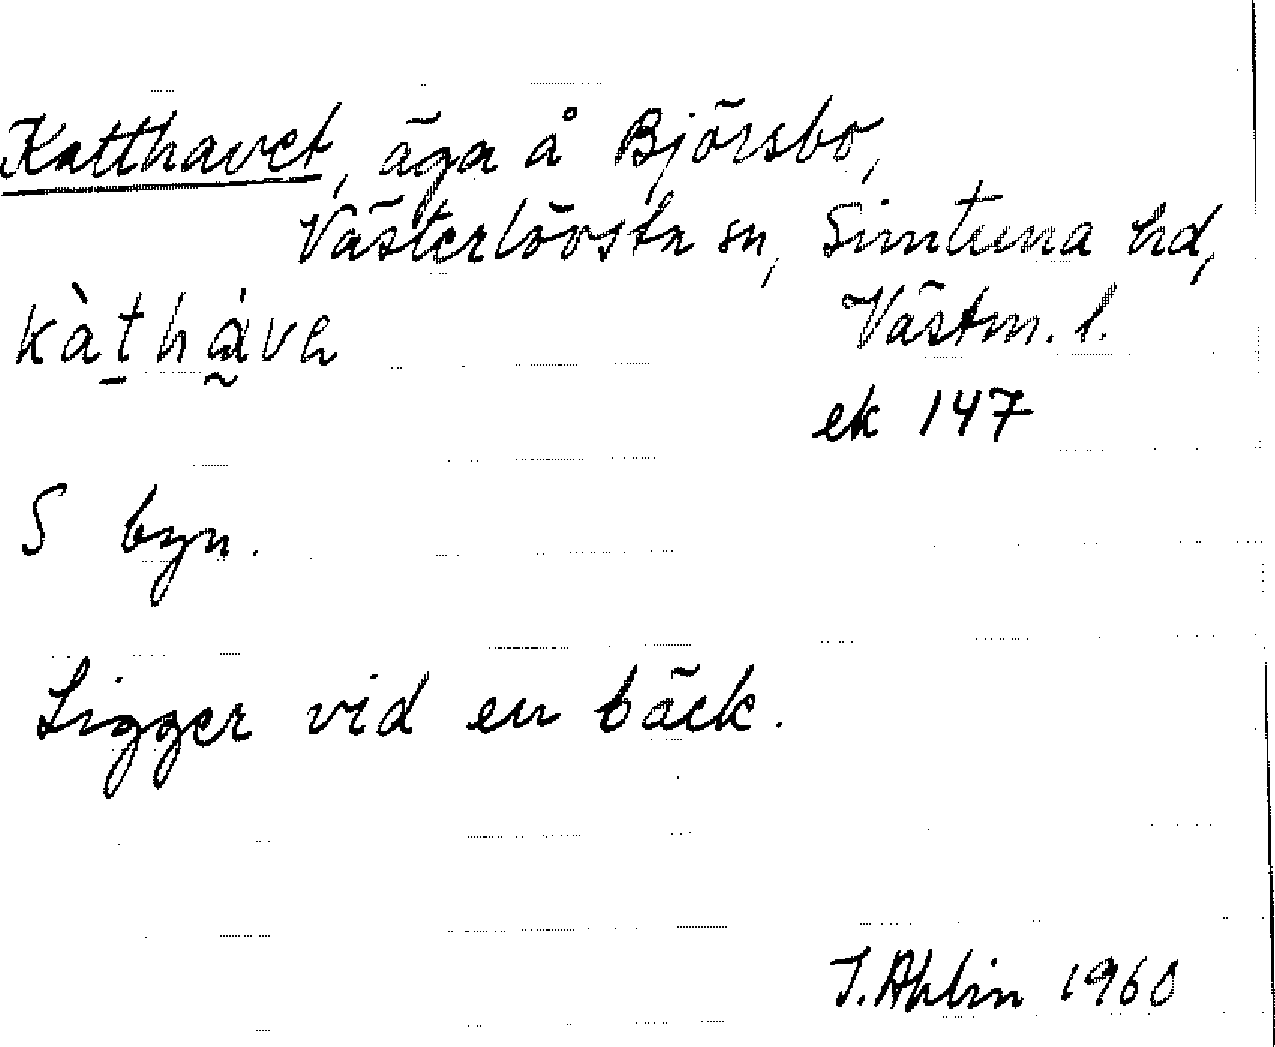 Katthavet, äga å Björsbo,
Västerlövsta sn, Simtuna hd,
kàt̠há̰va Västm. l.
ek 147
S byn.
Ligger vid en bäck.
I. Ahlin 1960